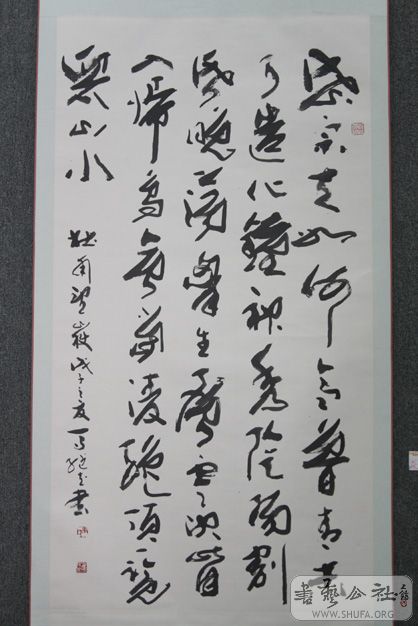 岱宗夫如何齊魯青未
了造化鍾神秀陰陽割
昏曉蕩胸生層雲決眥
入歸鳥會當凌絕頂一覽
眾山小
杜甫望嶽戊子之夏書
書藝公社
WWW.SHUFA.ORG